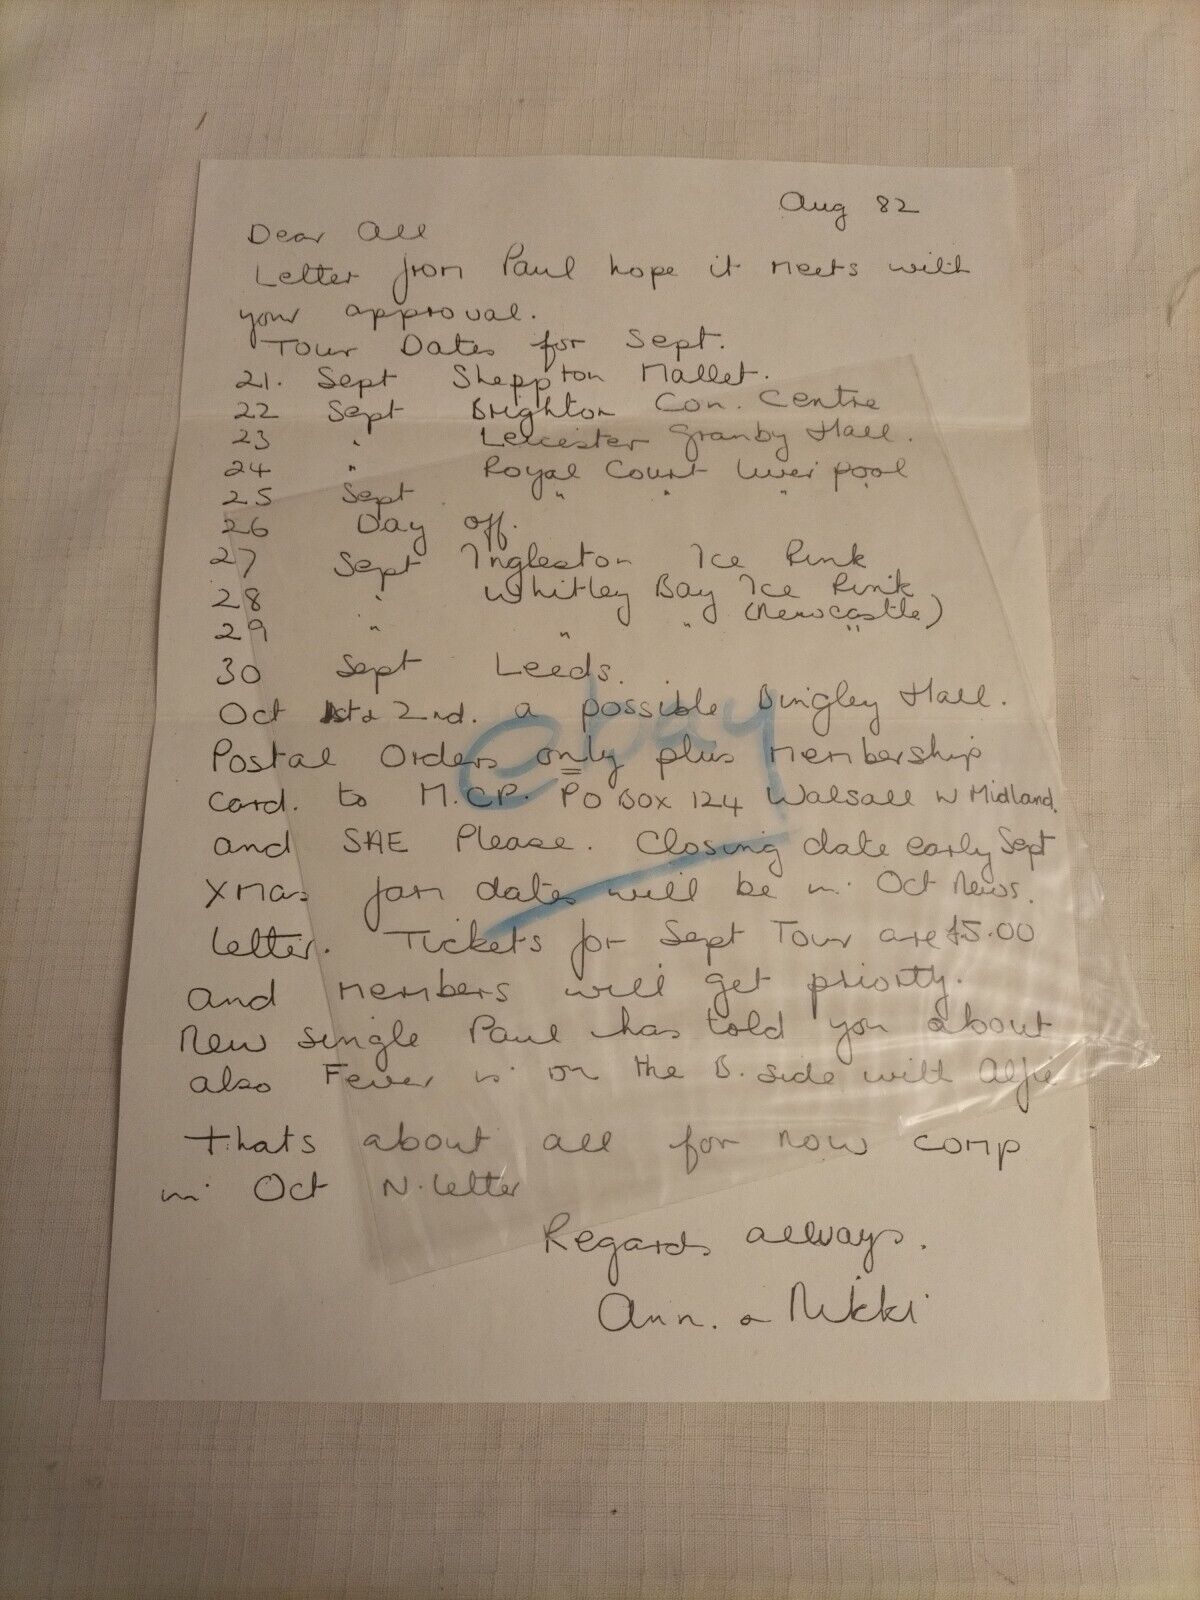 Aug 82
Dear All
Letter from Paul hope it meets with
your approval.
Tour Dates for Sept.
21. Sept Sheppton Mallet.
22 Sept Brighton Con. Centre
23 " Leicester Granby Hall.
24 " Royal Court Liverpool
25 Sept. " " " "
26 Day off.
27 Sept Ingleston Ice Rink
28 " Whitley Bay Ice Rink
(Newcastle)
29 " " " "
30 Sept Leeds.
Oct 1st & 2nd. a possible Bingley Hall.
Postal Orders only plus membership
card. to M.C.P. PO Box 124 Walsall W Midland.
and SAE Please. Closing date early Sept
Xmas Jam dates will be in Oct News.
letter. Tickets for Sept Tour are £5.00
and members will get priority.
New single Paul has told you about
also Fever is on the B. side with Alfie
Thats about all for now comp
in Oct N. letter
Regards always.
Ann. & Nikki
ebay